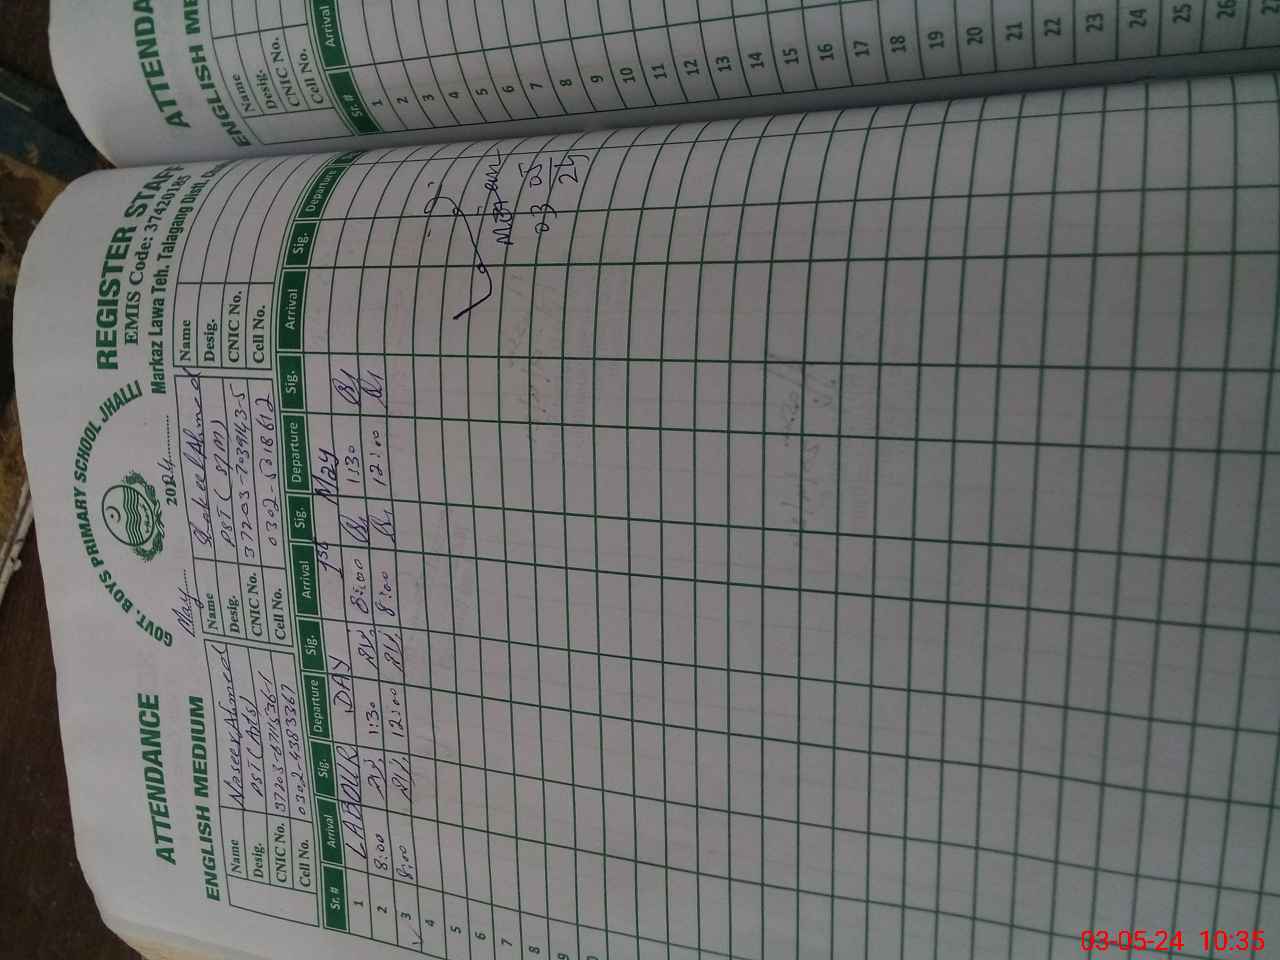 ATTENDANCE
REGISTER STAFF
GOVT. BOYS PRIMARY SCHOOL JHALLI
EMIS Code: 37420185
ENGLISH MEDIUM
May 2024
Markaz Lawa Teh. Talagang Distt.
Name Naseer Ahmed Name Ahmed Name
Desig. PST (Arts) Desig. PST (S/M) Desig.
CNIC No. CNIC No. CNIC No.
Cell No. 0302-4383367 Cell No. 0302-5218612 Cell No.
Sr. # Arrival Sig. Departure Sig. Arrival Sig. Departure Sig. Arrival Sig. Departure
1 LABOUR DAY 1st May
2 8:00 1:30 8:00 1:30
3 8:00 12:00 8:00 12:00
4
5
6
7
8
9
03 05
24
ATTENDA
ENGLISH ME
Name
Desig.
CNIC No.
Cell No.
Sr. # Arrival
1
2
3
4
5
6
7
8
9
10
11
12
13
14
15
16
17
18
19
20
21
22
23
24
25
26
27
03-05-24 10:35